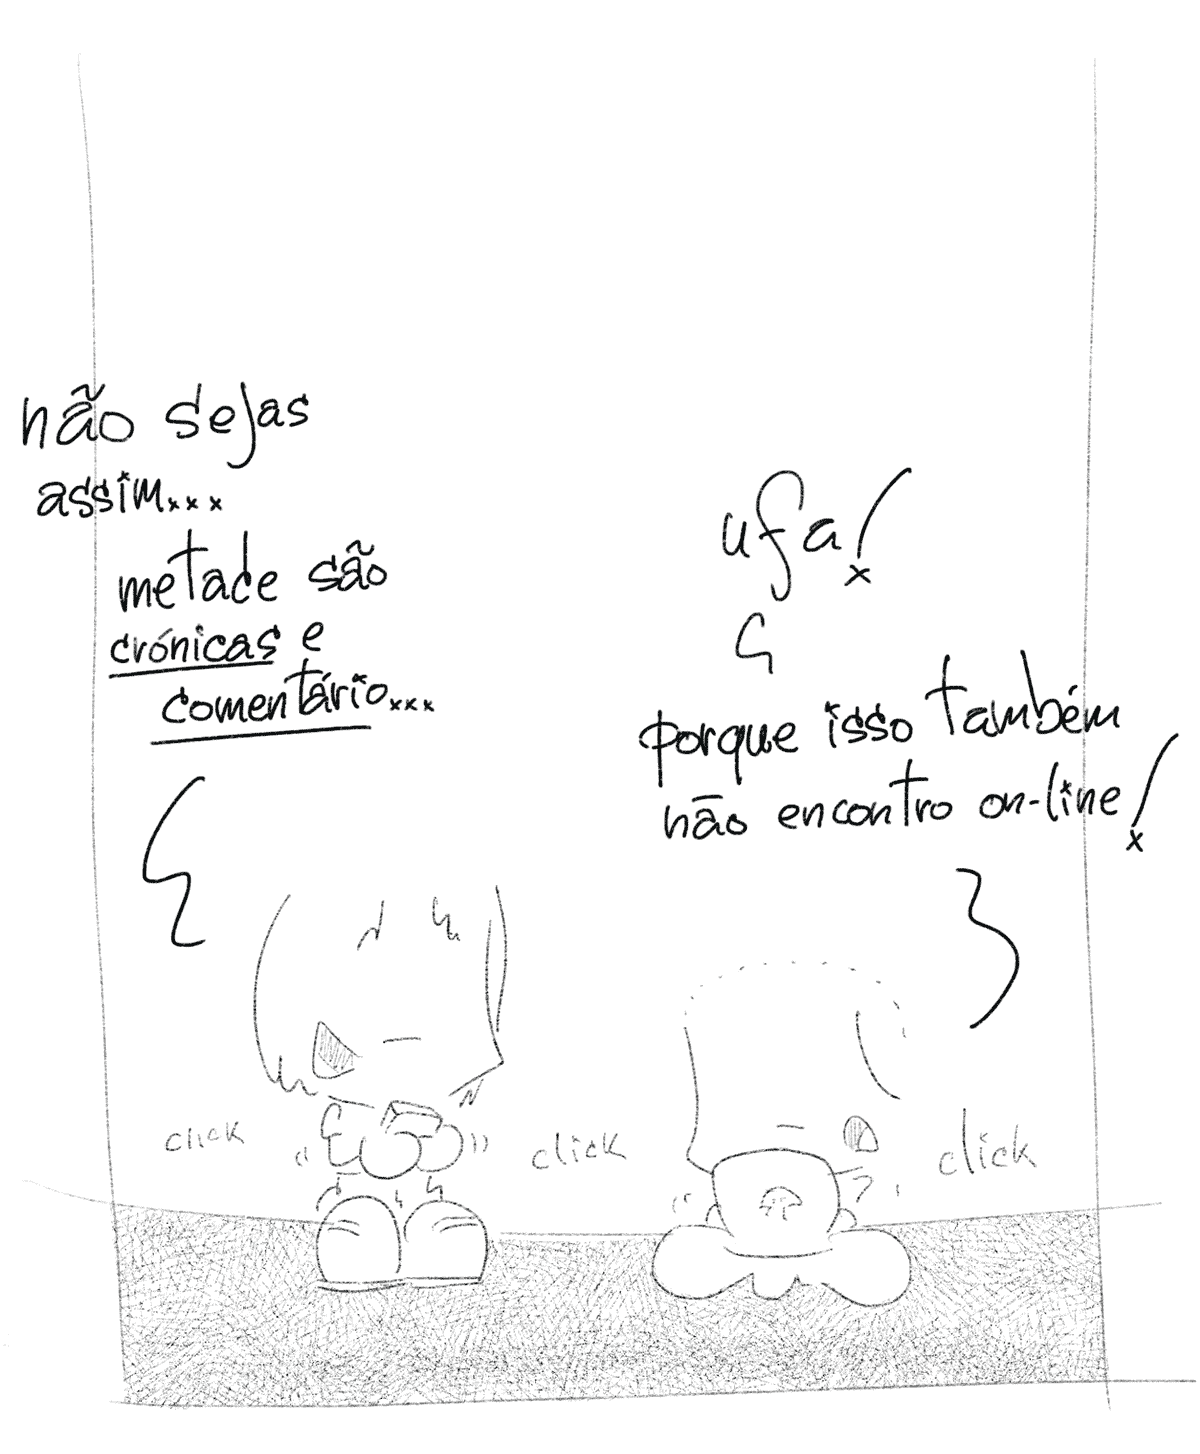 não sejas
assim...
metade são
crónicas e
comentário...
ufa!
porque isso também
não encontro on-line!
click
click
click